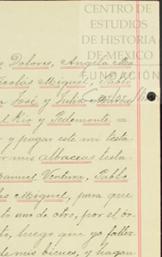 CENTRO DE
ESTUDIOS
DE HISTORIA
DE MEXICO
FUNDACIÓN
Dolores, Angela
Nicolás Miguel, Pablo
José y Julia
del Rio y Pedemonte, =
y pagar este mi testa
mis albaceas testa
Manuel Ventura, Pablo
Miguel, para que
uno de otro, por el or
luego que yo falle
mis bienes, y hagan